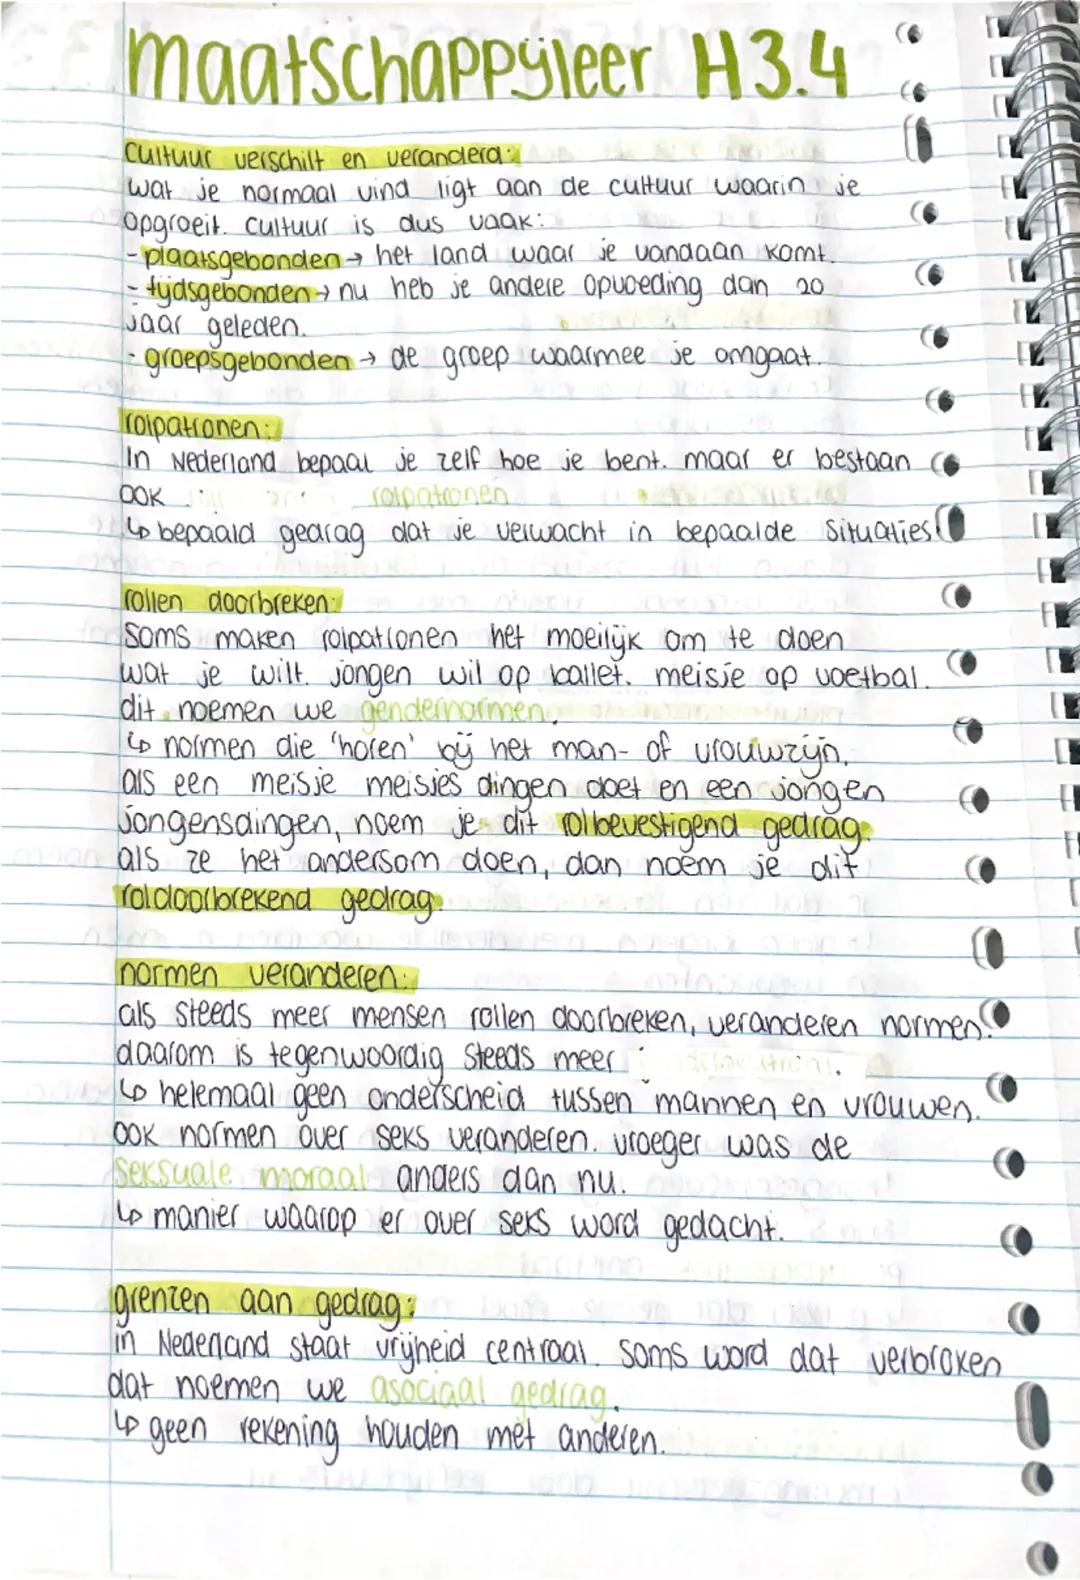 maatschappijleer H3.4
Cultuur verschilt en veranderd:
wat je normaal vind ligt aan de cultuur waarin je
opgroeit. cultuur is dus vaak:
- plaatsgebonden → het land waar je vandaan komt.
- tijdsgebonden → nu heb je andere opvoeding dan 20
jaar geleden.
- groepsgebonden → de groep waarmee je omgaat.
rolpatronen:
In Nederland bepaal je zelf hoe je bent. maar er bestaan
ook rolpatronen
↳ bepaald gedrag dat je verwacht in bepaalde situaties.
rollen doorbreken:
Soms maken rolpatronen het moeilijk om te doen
wat je wilt. jongen wil op ballet. meisje op voetbal.
dit noemen we gendernormen.
↳ normen die 'horen' bij het man- of vrouwzijn.
als een meisje meisjes dingen doet en een jongen
jongensdingen, noem je dit rolbevestigend gedrag.
als ze het andersom doen, dan noem je dit
roldoorbrekend gedrag.
normen veranderen:
als steeds meer mensen rollen doorbreken, veranderen normen.
daarom is tegenwoordig steeds meer
↳ helemaal geen onderscheid tussen mannen en vrouwen.
ook normen over seks veranderen. vroeger was de
seksuale moraal anders dan nu.
↳ manier waarop er over seks word gedacht.
grenzen aan gedrag:
in Nederland staat vrijheid centraal. soms word dat verbroken
dat noemen we asociaal gedrag.
↳ geen rekening houden met anderen.